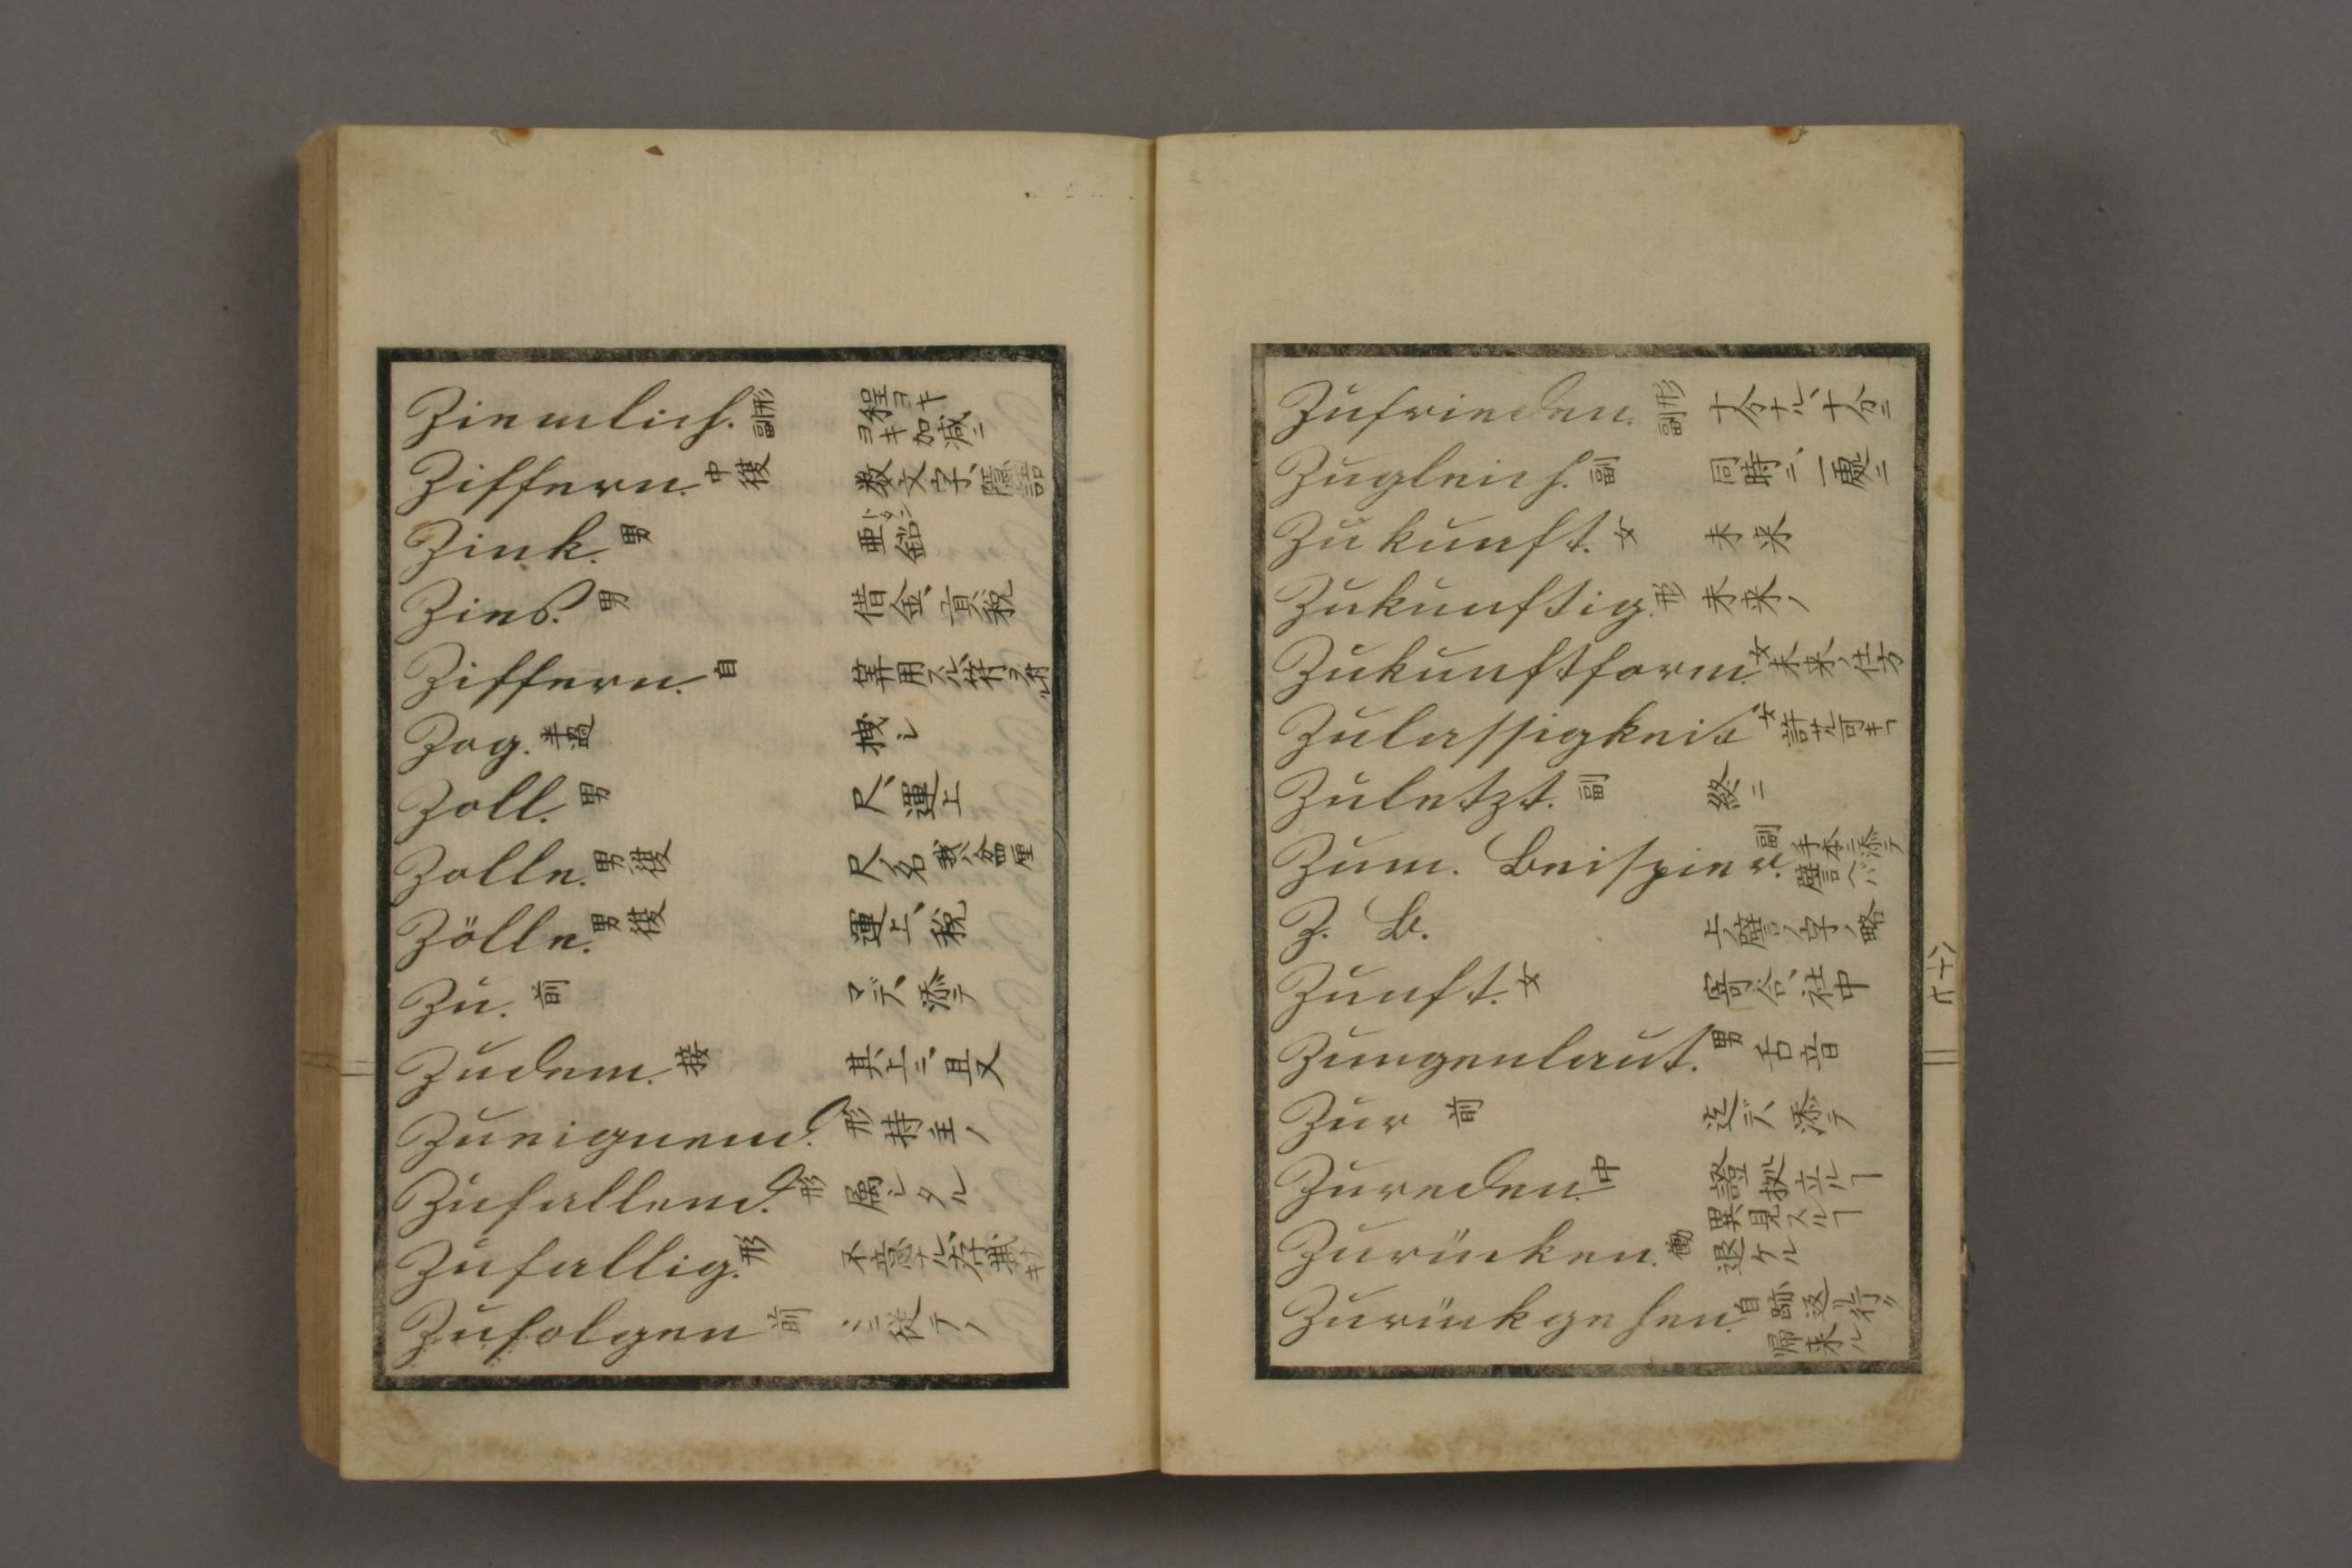 Ziemlich. 形副 程ヨキ ヨキ加減ニ
Ziffern. 中複 数文字、隱語
Zink. 男 亜鉛
Zins. 男 借金、貢税
Ziffern. 自 算用スル、符ヲ
Zog. 半過 拽シ
Zoll. 男 尺、運上
Zolle. 男複 尺名
Zölle. 男複 運上、税
Zu. 前 マデ、添テ
Zudem. 接 其上ニ、且又
Zueignend. 形 持主ノ
Zufallend. 形 属シタル
Zufallig. 形 不意ナル
Zufolgen 前 ニ従テノ
Zufrieden. 形副 十分ナル、十分ニ
Zugleich. 副 同時ニ、一處ニ
Zukunft. 女 未来
Zukunftig. 形 未来ノ
Zukunftform. 女 未来ノ仕方
Zulassigkeit 女 許サル可キ
Zuletzt. 副 終ニ
Zum. Beispier. 副 手本ニ添テ 譬ヘバ
Z. B. 上ノ譬ノ字ノ略
Zunft. 女 社中
Zungenlaut. 男 舌音
Zur 前 迄デ、添テ
Zureden. 中 證拠立ルヿ 異見スルヿ
Zurücken. 働 退ケル
Zurückgehen. 自 跡返リ行ク 帰来ル
八十六